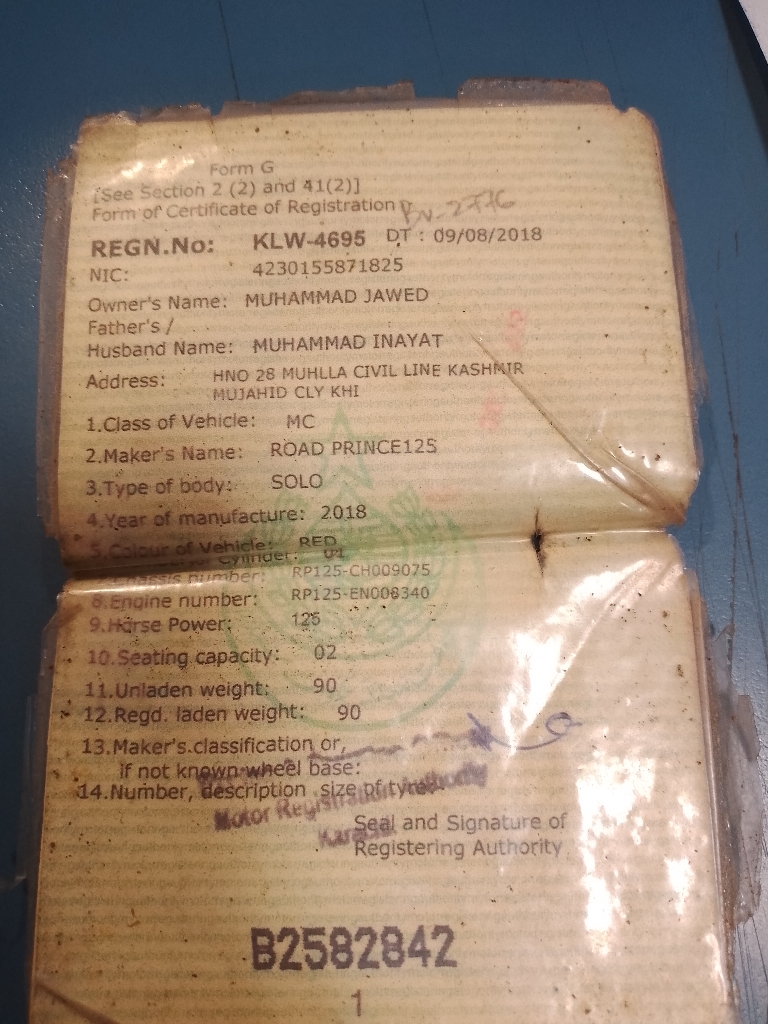 Form G
[See Section 2 (2) and 41(2)]
Form of Certificate of Registration
REGN.No: KLW-4695 DT : 09/08/2018
NIC: 4230155871825
Owner's Name: MUHAMMAD JAWED
Father's /
Husband Name: MUHAMMAD INAYAT
Address: HNO 28 MUHLLA CIVIL LINE KASHMIR
MUJAHID CLY KHI
1.Class of Vehicle: MC
2.Maker's Name: ROAD PRINCE125
3.Type of body: SOLO
4.Year of manufacture: 2018
5.Colour of Vehicle: RED
Cylinder: 01
Chassis number: RP125-CH009075
8.Engine number: RP125-EN008340
9.Horse Power: 125
10.Seating capacity: 02
11.Unladen weight: 90
12.Regd. laden weight: 90
13.Maker's.classification or,
if not known wheel base:
14.Number, description size of tyre
Motor Registration Authority
Karachi
Seal and Signature of
Registering Authority
B2582842
1